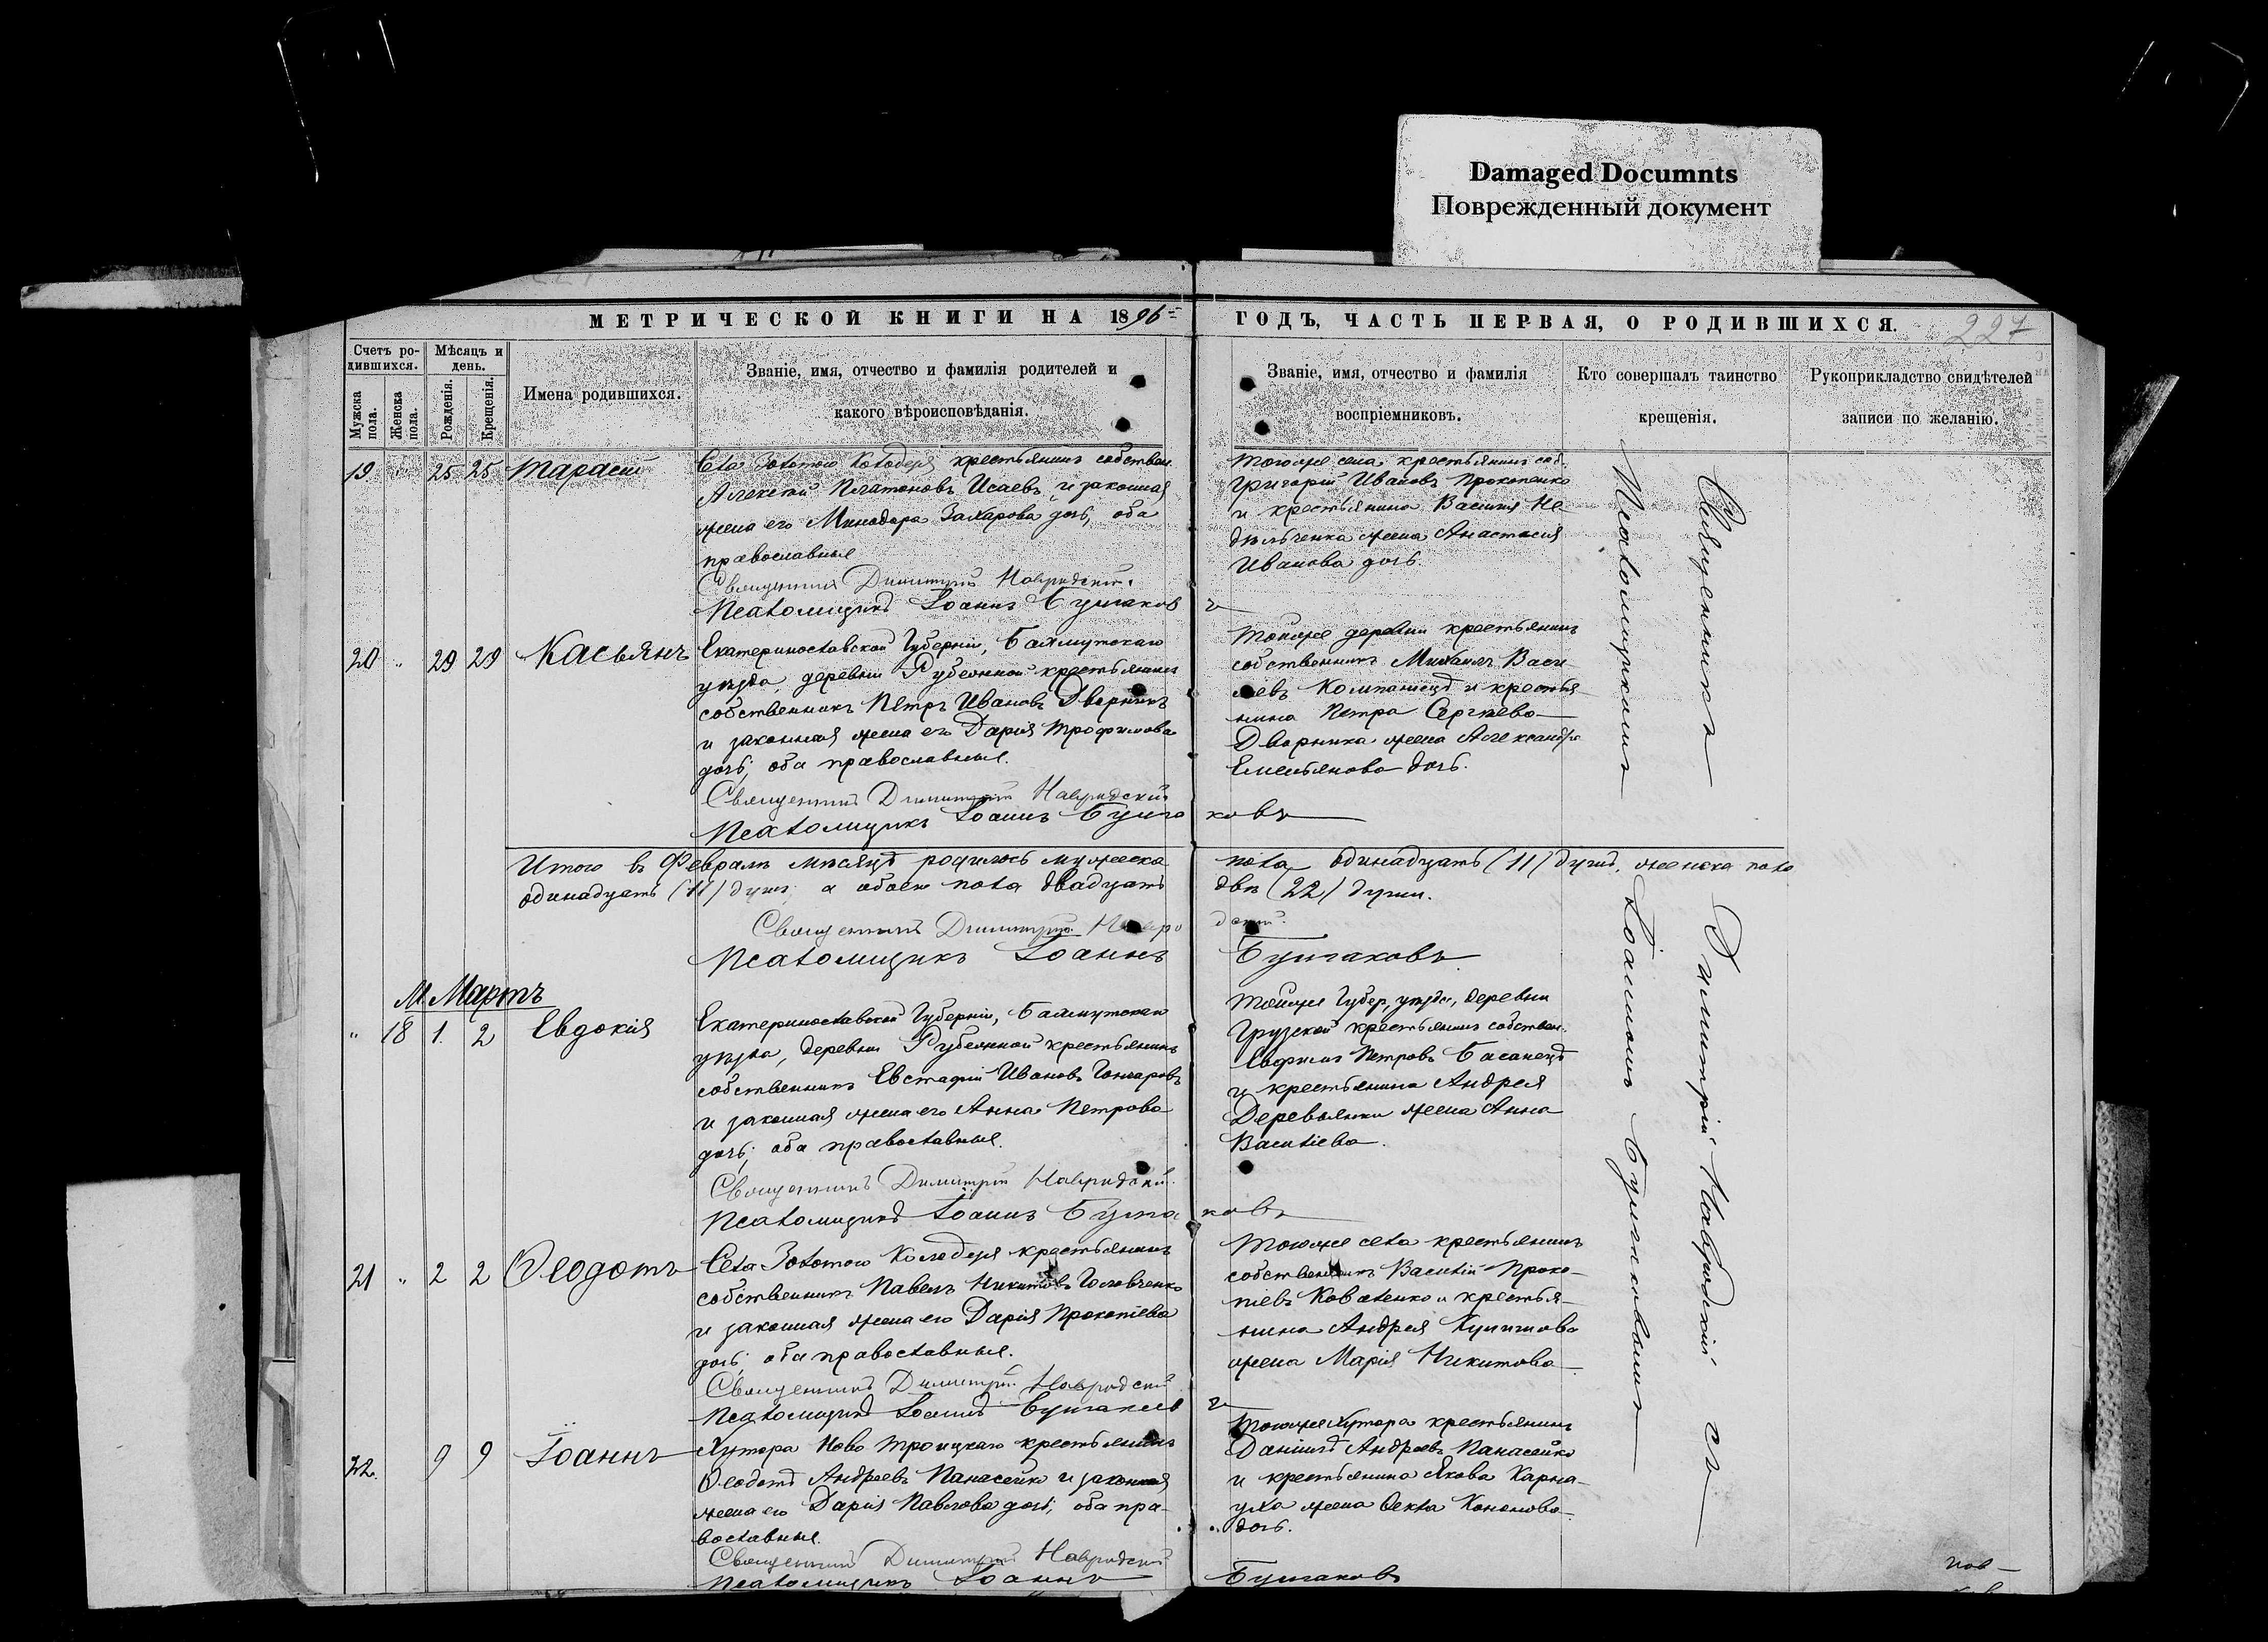 Damaged Documnts
Поврежденный документ
МЕТРИЧЕСКОЙ КНИГИ НА 1896
ГОДЪ, ЧАСТЬ ПЕРВАЯ, О РОДИВШИХСЯ.
227
Счетъ ро-
дившихся.
Мужска
пола.
Женска
пола.
Мѣсяцъ и
день.
Рожденія.
Крещенія.
Имена родившихся.
Званіе, имя, отчество и фамилія родителей и
какого вѣроисповѣданія.
Званіе, имя, отчество и фамилія
воспріемниковъ.
Кто совершалъ таинство
крещенія.
Рукоприкладство свидѣтелей
записи по желанію.
19 " 25 25 Тарасій
Села Золотого Колодезя крестьянинъ собствен.
Алексѣй Платоновъ Исаевъ и законная
жена его Минодора Захарова дочь, оба
православные
Священникъ Димитрій Навродскій.
Псаломщикъ Іоаннъ Булгаковъ
Тогоже села крестьянинъ соб.
Григорій Ивановъ Прокопенко
и крестьянина Василія Не-
дѣльченка жена Анастасія
Иванова дочь.
20 " 29 29 Касьянъ
Екатеринославской Губерніи, Бахмутскаго
уѣзда, деревни Рубежной крестьянинъ
собственникъ Петръ Ивановъ Дворникъ
и законная жена его Дарія Трофимова
дочь, оба православные.
Священникъ Димитрій Навродскій
Псаломщикъ Іоаннъ Булгаковъ
Тойже деревни крестьянинъ
собственникъ Михаилъ Васи-
льевъ Компаніецъ и крестья-
нина Петра Сергѣева
Дворника жена Александра
Емельянова дочь.
Итого въ Февралѣ мѣсяцѣ родилось мужеска пола одинадцать (11) душъ, женска пола
одинадцать (11) душъ, а обоего пола двадцать двѣ (22) души.
Священникъ Димитрій Навродскій.
Псаломщикъ Іоаннъ Булгаковъ
М. Мартъ
" 18 1. 2 Евдокія
Екатеринославской Губерніи, Бахмутскаго
уѣзда, деревни Рубежной крестьянинъ
собственникъ Евстафій Ивановъ Гончаровъ
и законная жена его Анна Петрова
дочь, оба православные.
Священникъ Димитрій Навродскій.
Псаломщикъ Іоаннъ Булгаковъ
Тойже Губер, уѣзда, деревни
Грузской крестьянинъ собствен.
Петровъ Басанецъ
и крестьянина Андрея
Деревянки жена Анна
Василіева.
21 " 2 2 Ѳеодотъ
Села Золотого Колодезя крестьянинъ
собственникъ Павелъ Никитовъ Головченко
и законная жена его Дарія Прокопіева
дочь, оба православные.
Священникъ Димитрій Навродскій
Псаломщикъ Іоаннъ Булгаковъ
Тогоже села крестьянинъ
собственникъ Василій Проко-
піевъ Коваленко и крестья-
нина Андрея
жена Марія Никитова
22. 9 9 Іоаннъ
Хутора Ново Троицкаго крестьянинъ
Ѳеодотъ Андреевъ Панасейко и законная
жена его Дарія Павлова дочь, оба пра-
вославные.
Священникъ Димитрій Навродскій
Псаломщикъ Іоаннъ Булгаковъ
Тогоже Хутора крестьянинъ
Даніилъ Андреевъ Панасейко
и крестьянина Якова Карна-
уха жена Ѳекла Кононова
дочь.
Священникъ Димитрій Навродскій съ
Псаломщикомъ Іоанномъ Булгаковымъ